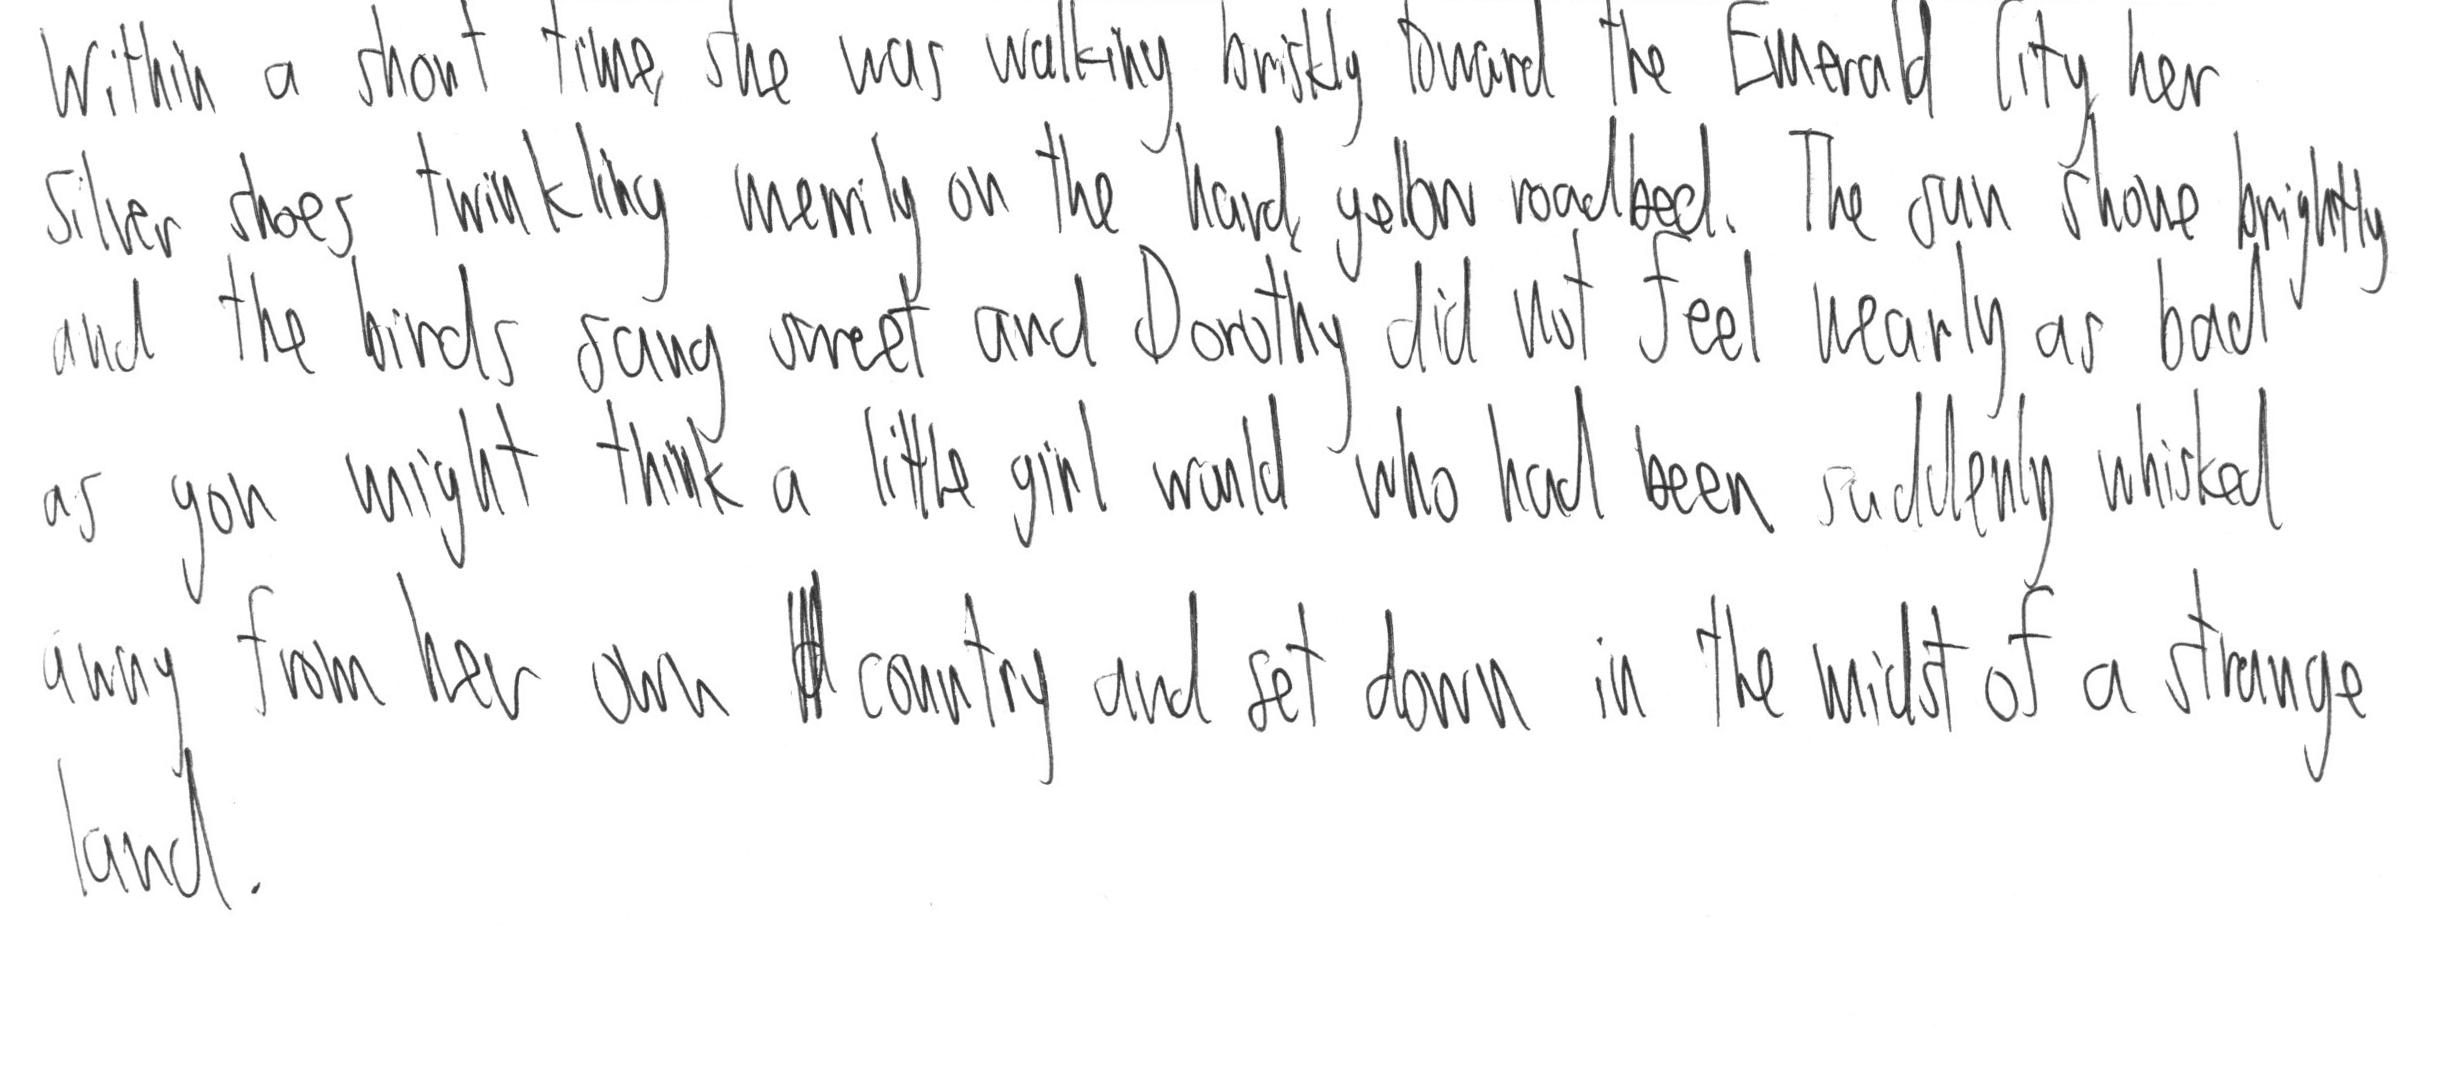 Within a short time, she was walking briskly toward the Emerald City her
silver shoes twinkling merrily on the hard, yellow roadbed. The sun shone brightly
and the birds sang sweet and Dorothy did not feel nearly as bad
as you might think a little girl would who had been suddenly whisked
away from her own country and set down in the midst of a strange
land.